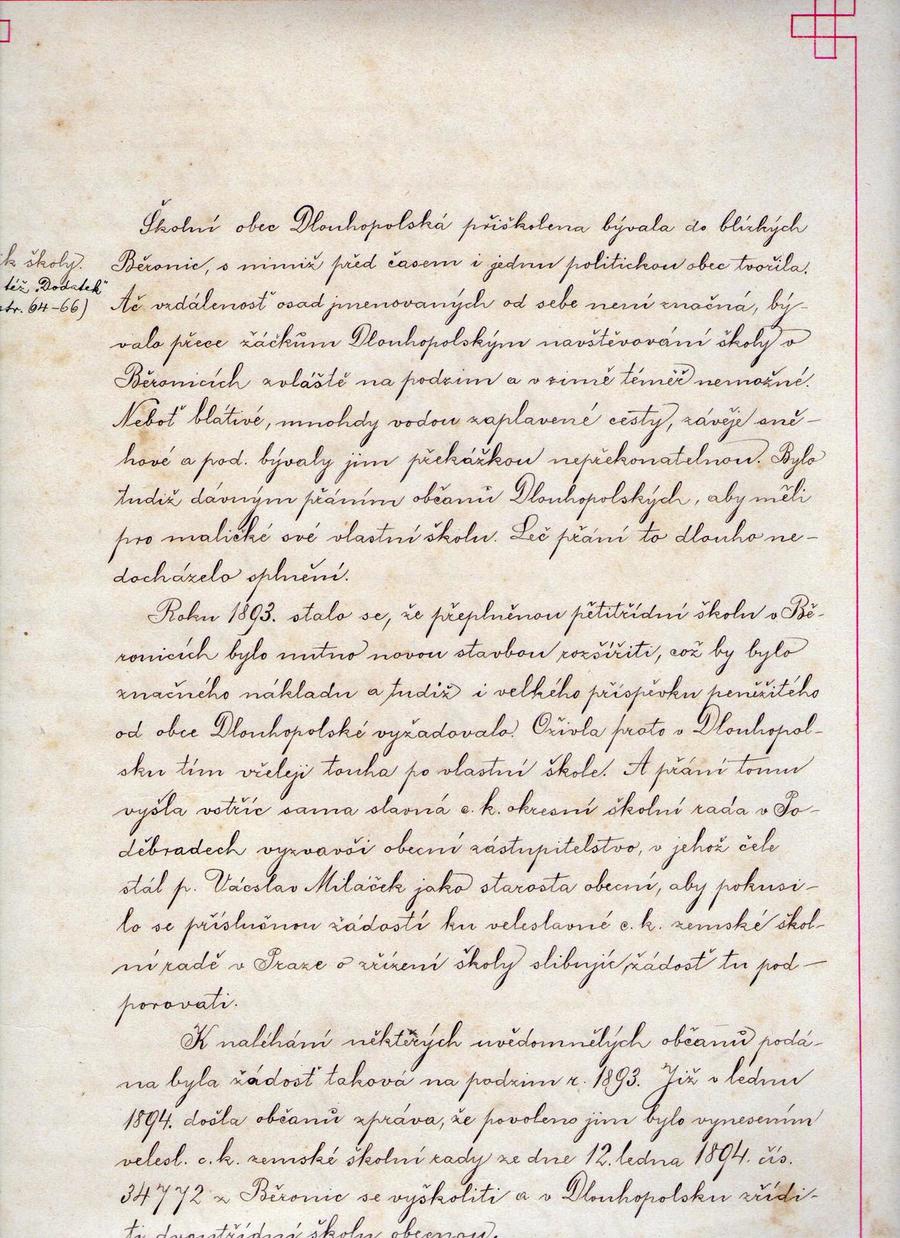 Školní obec Dlouhopolská přiškolena bývala do blízkých
Běronic, s nimiž před časem i jednu politickou obec tvořila.
Ač vzdálenosť osad jmenovaných od sebe není značná, bý-
valo přece žáčkům Dlouhopolským navštěvování školy v
Běronicích zvláště na podzim a v zimě téměř nemožné.
Neboť blátivé, mnohdy vodou zaplavené cesty, závěje sně-
hové a pod. bývaly jim překážkou nepřekonatelnou. Bylo
tudiž dávným přáním občanů Dlouhopolských, aby měli
pro maličké své vlastní školu. Leč přání to dlouho ne-
docházelo splnění.
Roku 1893. stalo se, že přeplněnou pětitřídní školu v Bě-
ronicích bylo nutno novou stavbou rozšířiti, což by bylo
značného nákladu a tudiž i velkého příspěvku peněžitého
od obce Dlouhopolské vyžadovalo. Ožívla proto v Dlouhopol-
sku tím vřeleji touha po vlastní škole. A přání tomu
vyšla vstříc sama slavná c. k. okresní školní rada v Po-
děbradech vyzvavši obecní zástupitelstvo, v jehož čele
stál p. Vácslav Miláček jako starosta obecní, aby pokusi-
lo se příslušnou žádostí ku veleslavné c. k. zemské škol-
ní radě v Praze o zřízení školy slibujíc žádosť tu pod-
porovati.
K naléhání některých uvědomnělých občanů podá-
na byla žádosť taková na podzim r. 1893. Již v lednu
1894. došla občanů zpráva, že povoleno jim bylo vynesením
velesl. c. k. zemské školní rady ze dne 12. ledna 1894. čís.
34772 z Běronic se vyškoliti a v Dlouhopolsku zřídi-
ti dvoutřídní školu obecnou.
ik školy.
též „Dodatek"
str. 64-66)